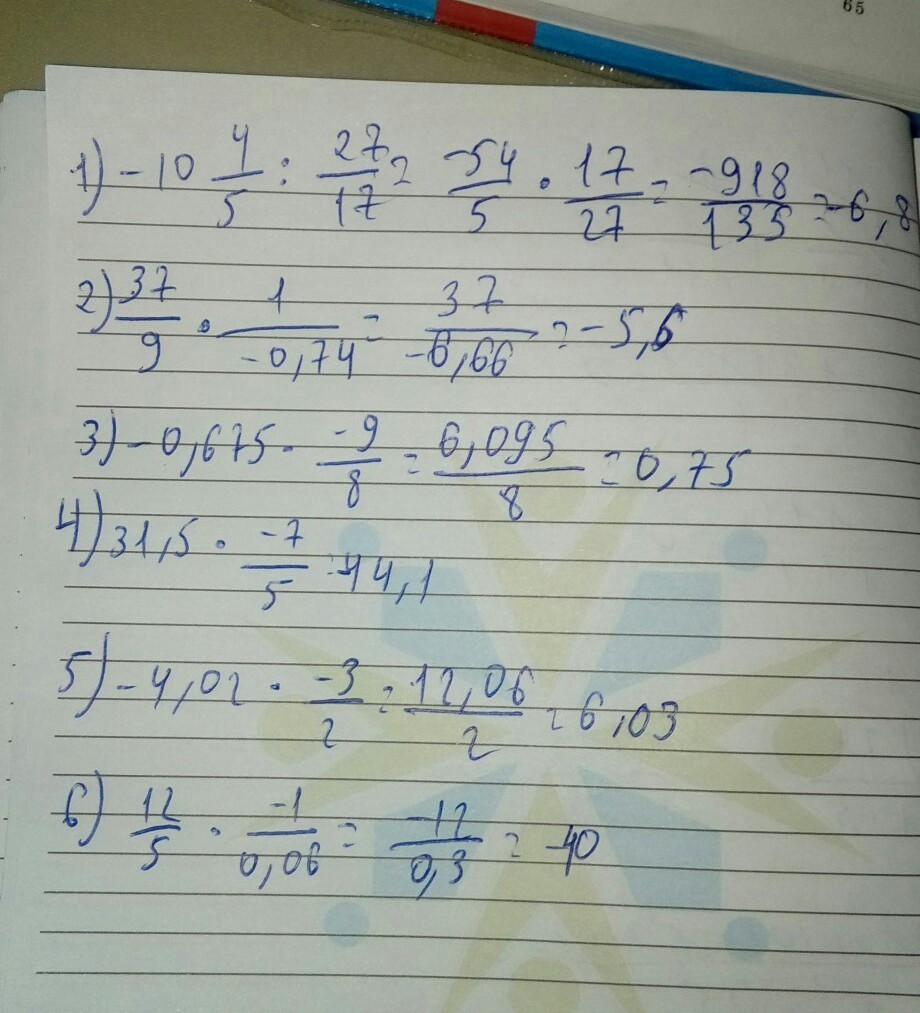 65
1) -10 4/5 : 27/17 = -54/5 · 17/27 = -918/135 = -6,8
2) 37/9 · 1/-0,74 = 37/-6,66 = -5,6
3) -0,675 · -9/8 = 6,095/8 = 0,75
4) 31,5 · -7/5 = -44,1
5) -4,02 · -3/2 = 12,06/2 = 6,03
6) 12/5 · -1/0,06 = -12/0,3 = -40